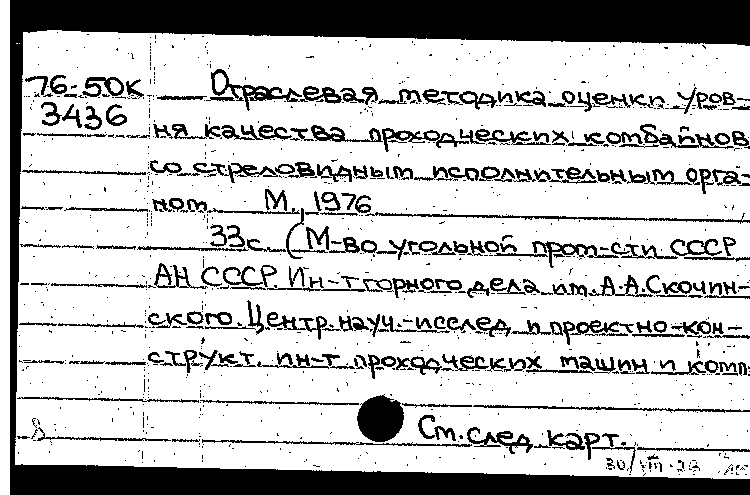 76-50к Отраслевая методика оценки уров-
3436
ня качества проходческих комбайнов
со стреловидным исполнительным орга-
ном. М., 1976
33с. (М-во угольной пром-сти СССР
АН СССР. Ин-т горного дела им. А.А.Скочин-
ского. Центр. науч.-исслед. и проектно-кон-
структ. ин-т проходческих машин и комп
См. след. карт.
8
30/VIII-